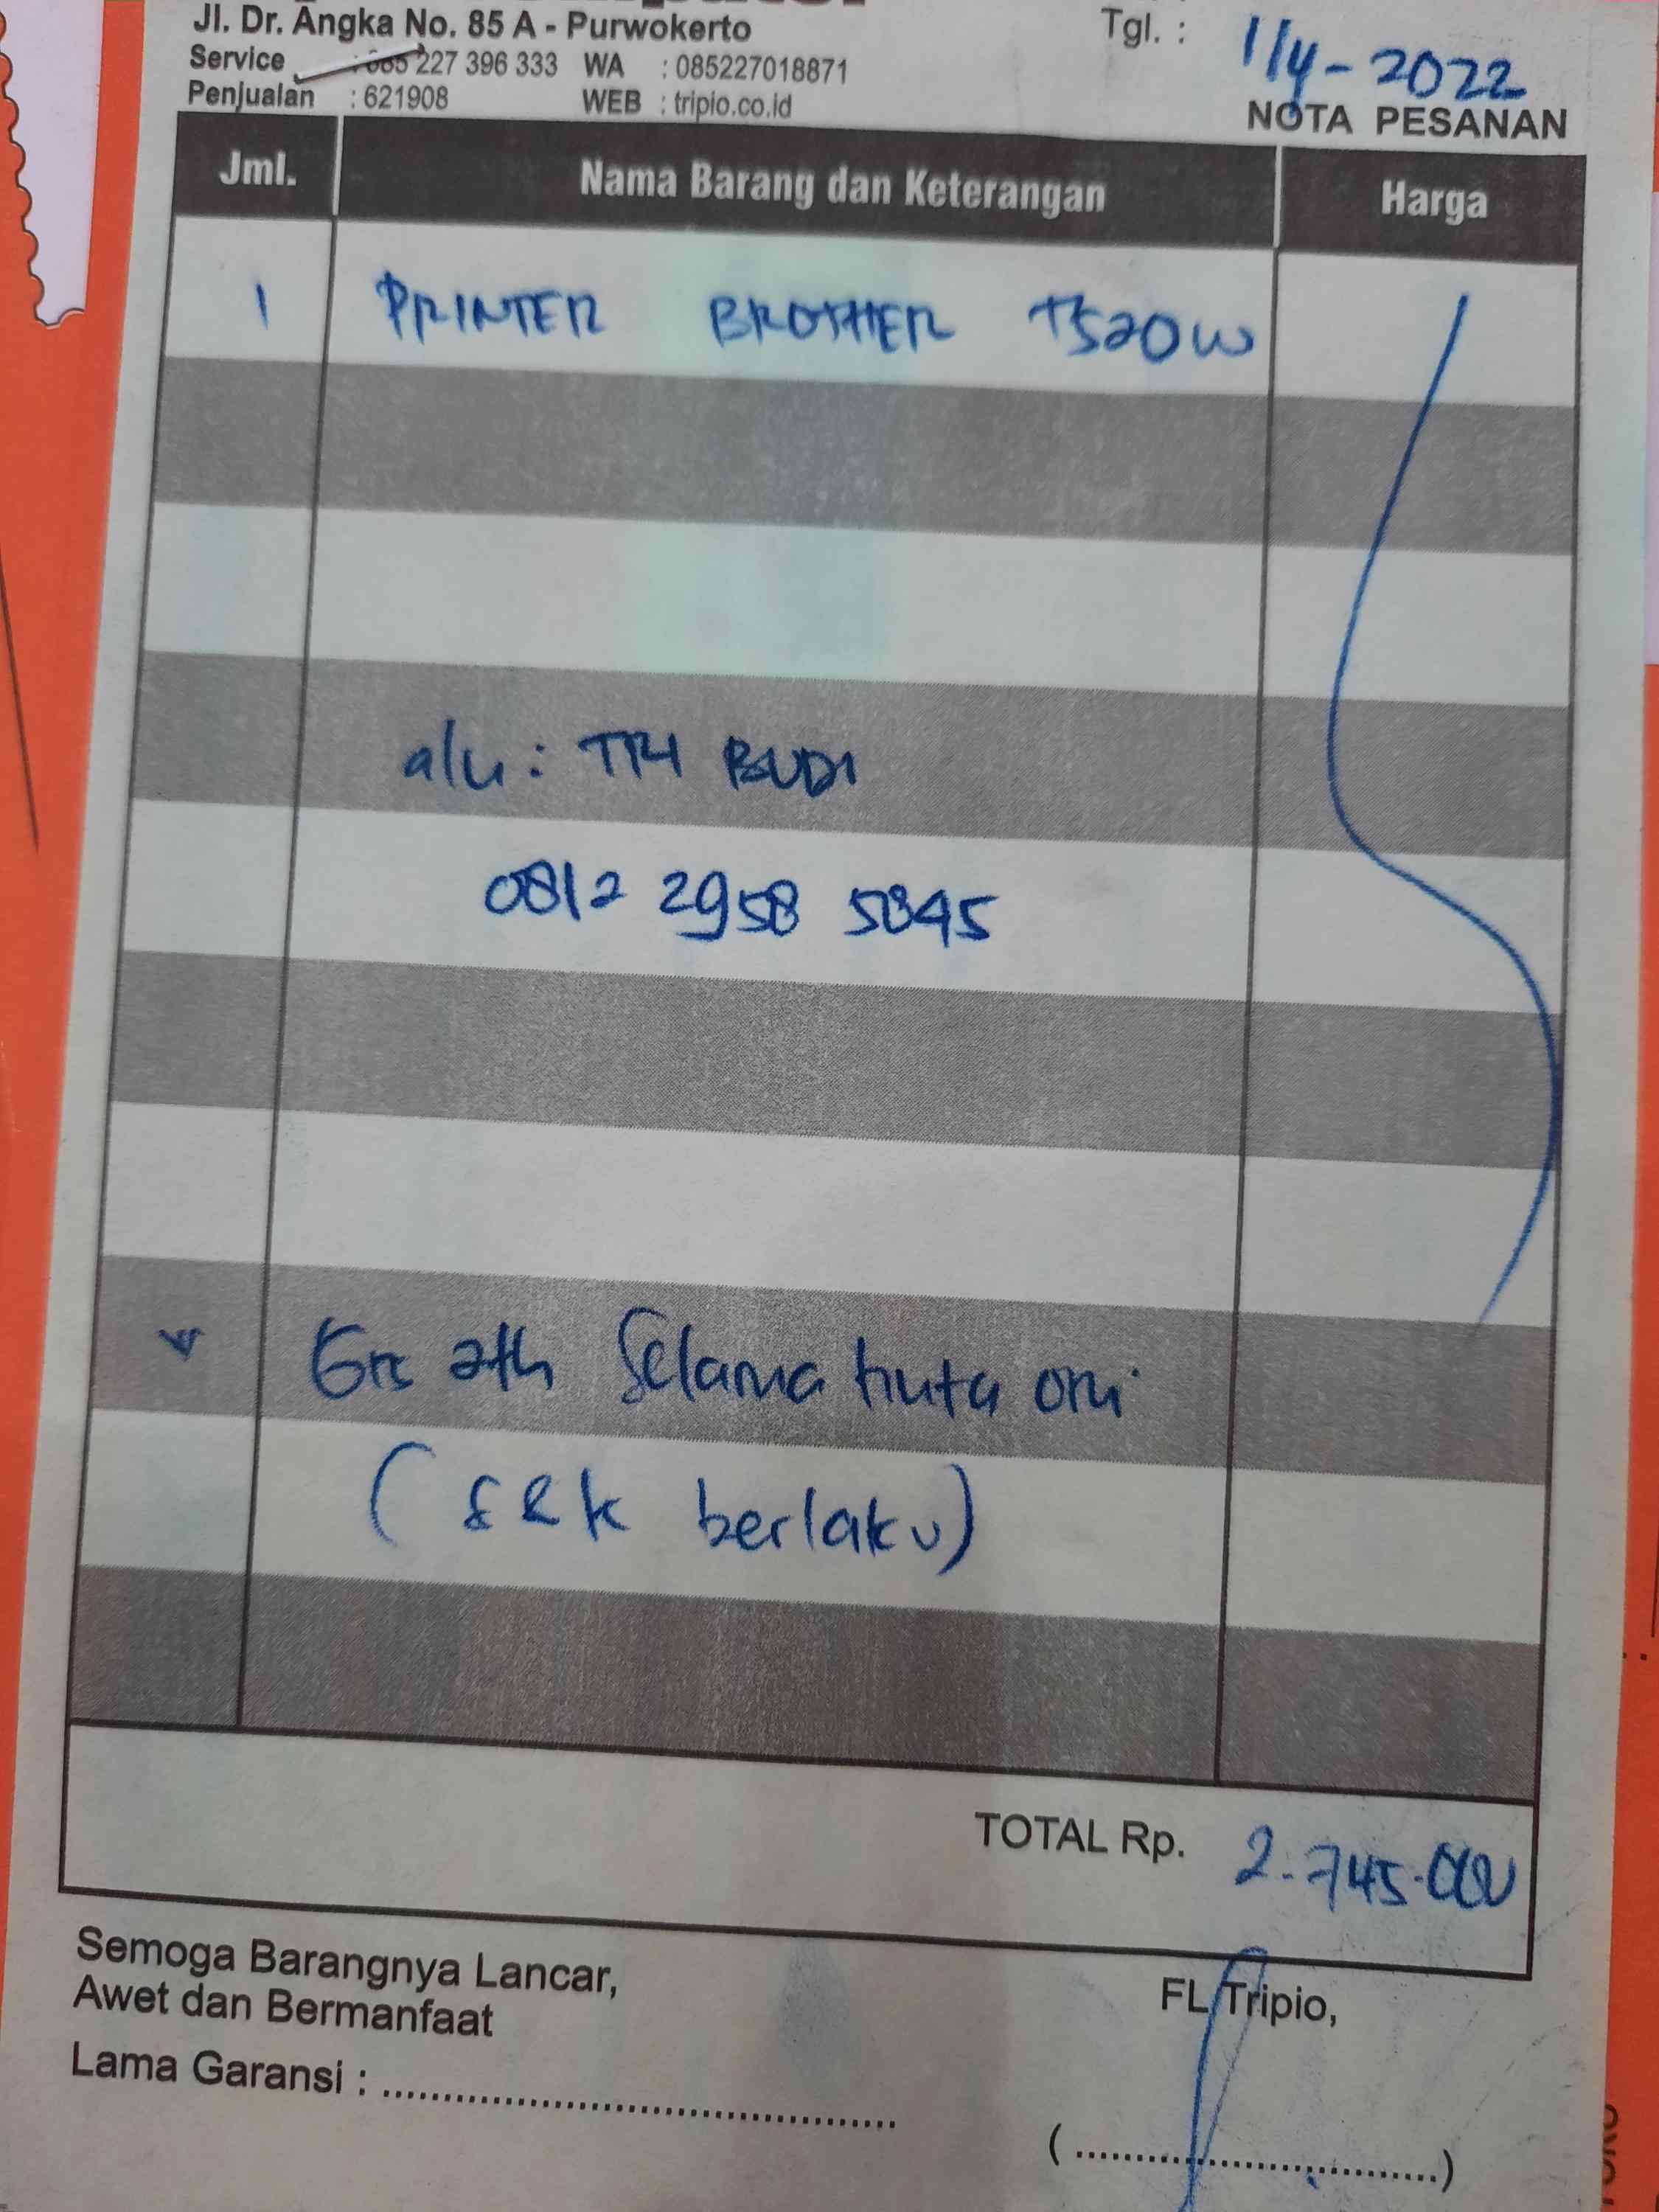 Jl. Dr. Angka No. 85 A - Purwokerto
Tgl. : 1/4-2022
Service : 085 227 396 333 WA : 085227018871
Penjualan : 621908 WEB : tripio.co.id
NOTA PESANAN
Jml. Nama Barang dan Keterangan Harga
1 PRINTER BROTHER T520W
a/n : TRI BUDI
0812 2958 5845
Grs 2th Selama tinta ori
(S&K berlaku)
TOTAL Rp. 2.745.000
Semoga Barangnya Lancar,
Awet dan Bermanfaat
FL Tripio,
Lama Garansi : ..........................................
( .................................)